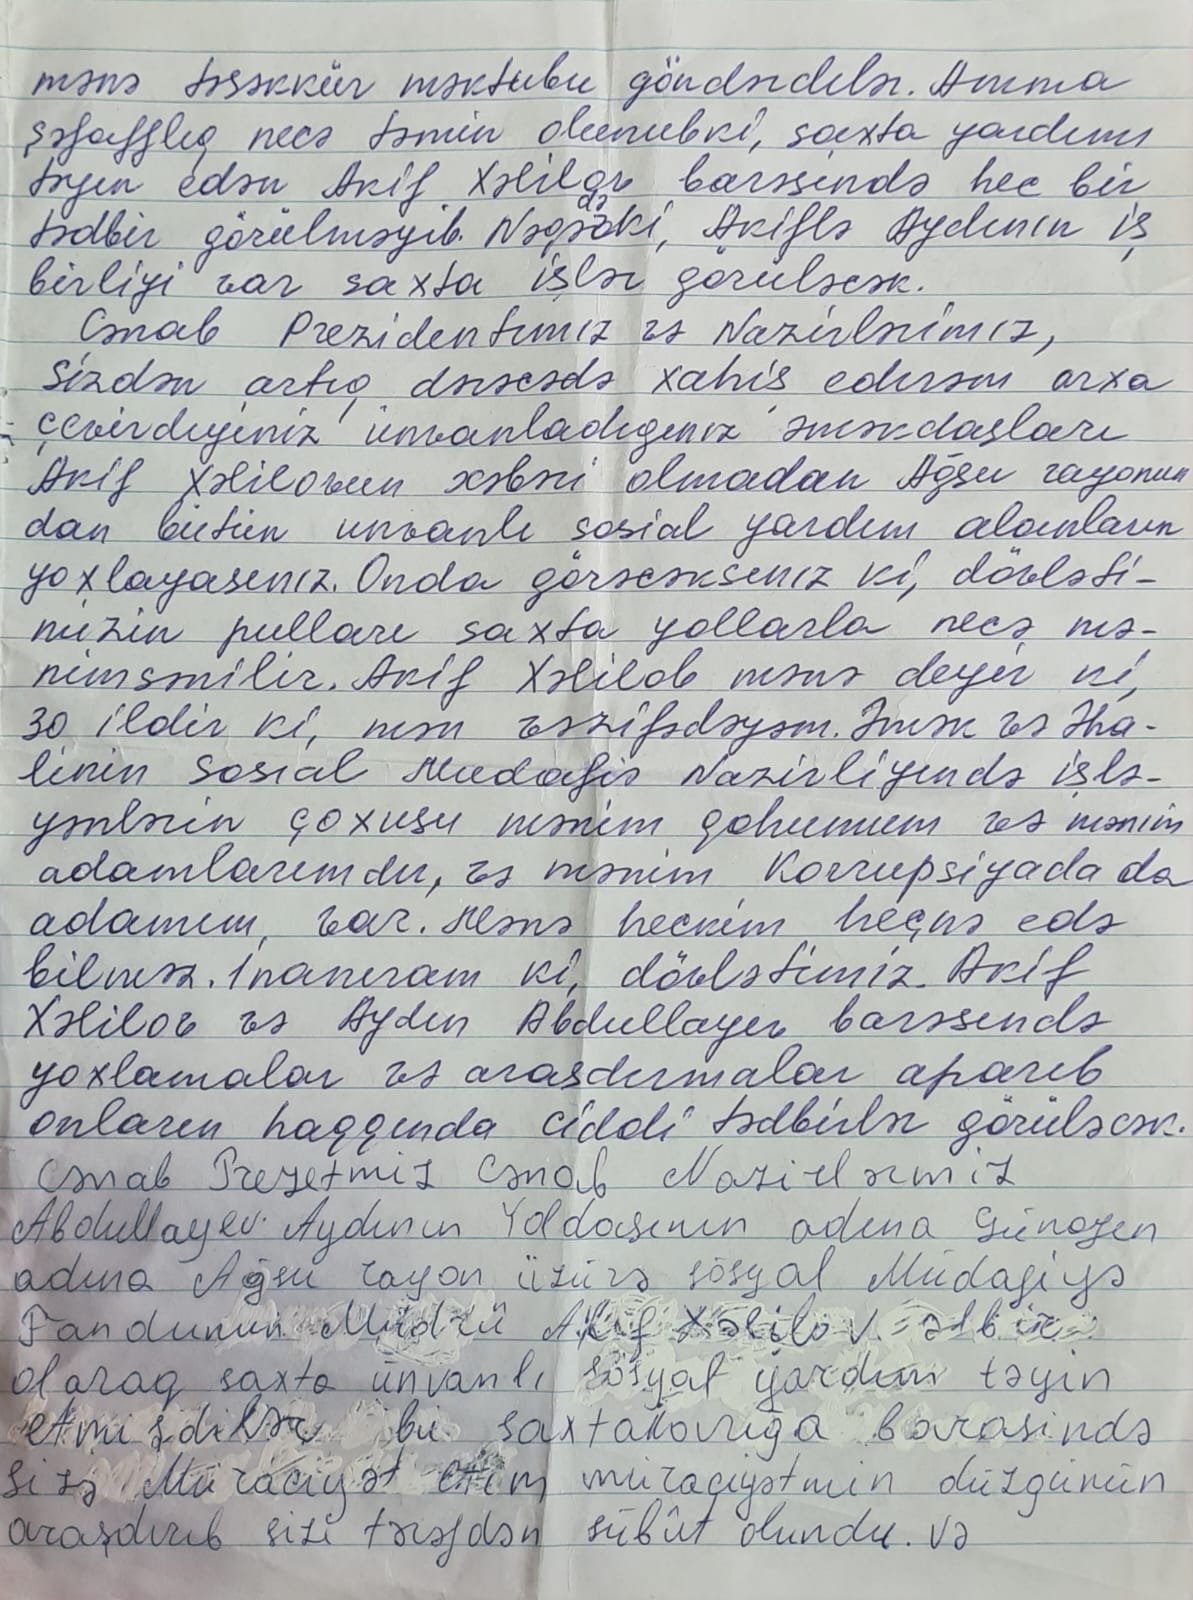 mənə təşəkkür məktubu göndərdilər. Amma
şəfafflıq necə təmin olunubki, saxta yardımı
təyin edən Akif Xəlilov barəsində hec bir
tədbir görülməyib. Nəqədəki, Akiflə Aydının iş
birliyi var saxta işlər görüləcək.
Cənab Prezidentimiz və Nazirlərimiz,
Sizdən artıq dərəcədə xahis edirəm arxa
çevirdiyiniz ünvanladığınız əməkdaşları
Akif Xəlilovun xəbəri olmadan Ağsu rayonun
dan bütün unvanlı sosial yardım alanların
yoxlayasınız. Onda görəcəksiniz ki, dövləti-
mizin pulları saxta yollarla necə mə-
nimsənilir. Akif Xəlilob mənə deyir ki,
30 ildir ki, mən vəzifədəyəm. Əmək və Əha-
linin Sosial Mudafiə Nazirliyində işlə-
yənlərin çoxusu mənim qohumum və mənim
adamlarımdı, və mənim Korrupsiyada da
adamım, var. Mənə heckim heçnə edə
bilməz. İnanıram ki, dövlətimiz Akif
Xəlilov və Aydın Abdullayev barəsində
yoxlamalar və arasdırmalar aparıb
onların haqqında ciddi tədbirlər görüləcək.
Cənab Prezetmiz Cənab Nazirlərmiz
Abdullayev Aydının Yoldaşının adına Günəşen
adına Ağsu rayon üzürə sosyal Müdafiyə
Fandunun Müdrü Akif Xəlilov. əlbir
olaraq saxta ünvanlı Sosyal yardım təyin
etmişdilər bu saxtakarlığa barasində
sizə Müraciyət etdim müraciyətmin düzgünün
araşdırıb sizi tərəfdən sübut olundu. və